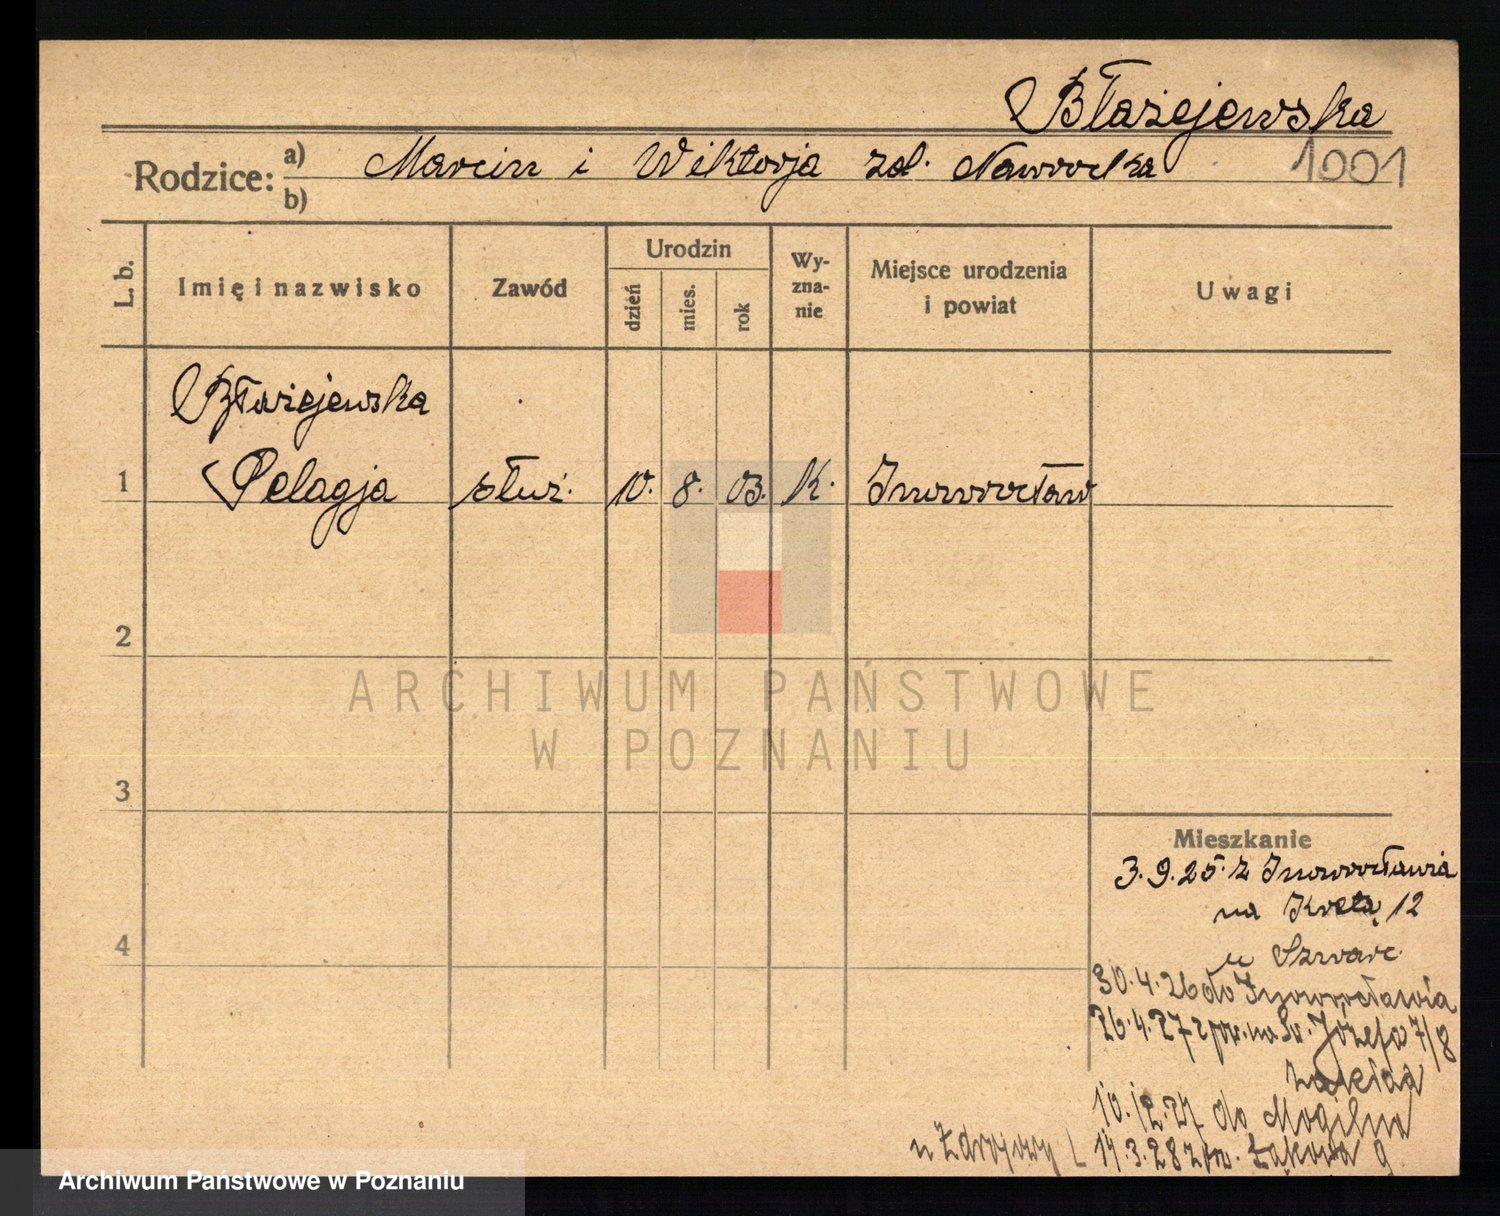 Błażejewska
Rodzice: a) Marcin i Wiktorja zd. Nawrocka 1001
b)
L. b. Imię i nazwisko Zawód Urodzin dzień mies. rok Wy-zna-nie Miejsce urodzenia i powiat Uwagi
Błażejewska
1 Pelagja służ. 10. 8. 03. K. Inowrocław
2
3
4
Mieszkanie
3.9.25. z Inowrocławia
na 12
u Szwarc
30.4.26 do Inowrocławia
26.4.27 z pow. na Św. Józefa 7/8
zakład
10.12.27 do Mogilna
u L 14.3.28 z Łąkowa 9
ARCHIWUM PAŃSTWOWE
W POZNANIU
Archiwum Państwowe w Poznaniu